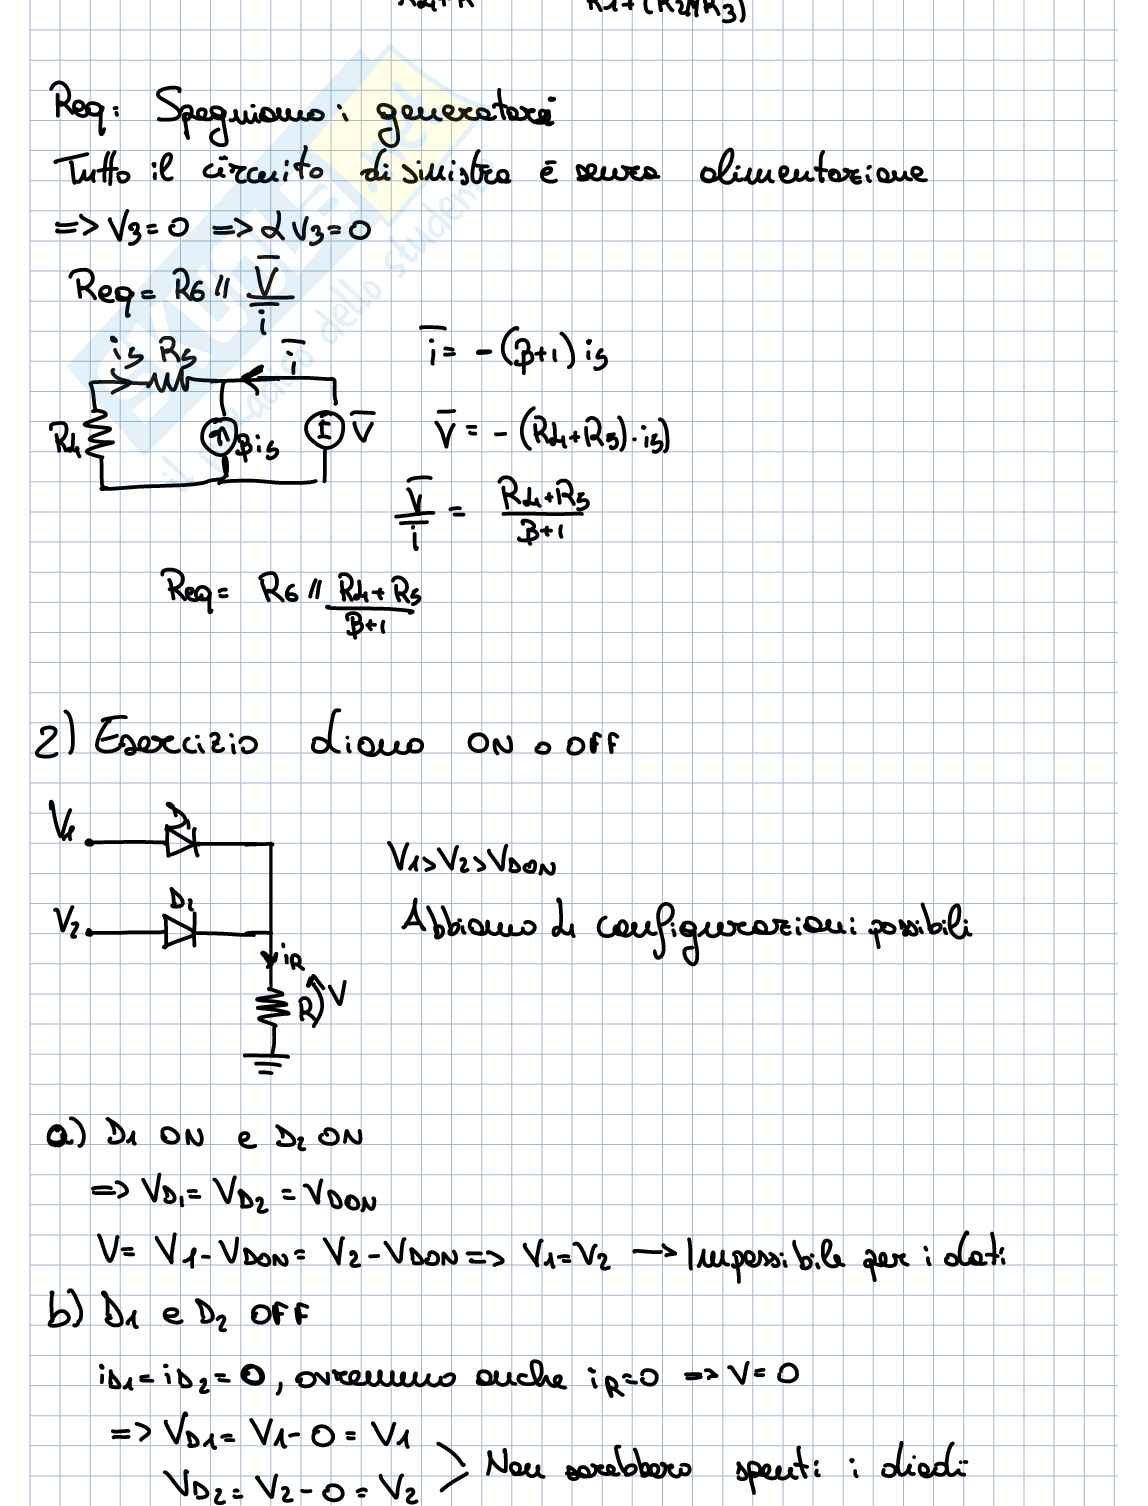 R1+(R2//R3)
Req: Spegniamo i generatori
Tutto il circuito di sinistra è senza alimentazione
=> V3=0 => αV3=0
Req = R6 // V̅/i̅
i5 R5 i̅
R4 βi5 V̅
i̅ = -(β+1) i5
V̅ = -(R4+R5)·i5)
V̅/i̅ = (R4+R5)/(β+1)
Req = R6 // (R4+R5)/(β+1)
2) Esercizio diano ON o OFF
V1 D1
V2 D2
iR
R V
V1>V2>VDON
Abbiamo 4 configurazioni possibili
a) D1 ON e D2 ON
=> VD1 = VD2 = VDON
V= V1-VDON = V2-VDON => V1=V2 → Impossibile per i dati
b) D1 e D2 OFF
iD1=iD2=0, avremmo anche iR=0 => V=0
=> VD1= V1-0 = V1
VD2 = V2-0 = V2
Non sarebbero spenti i diodi